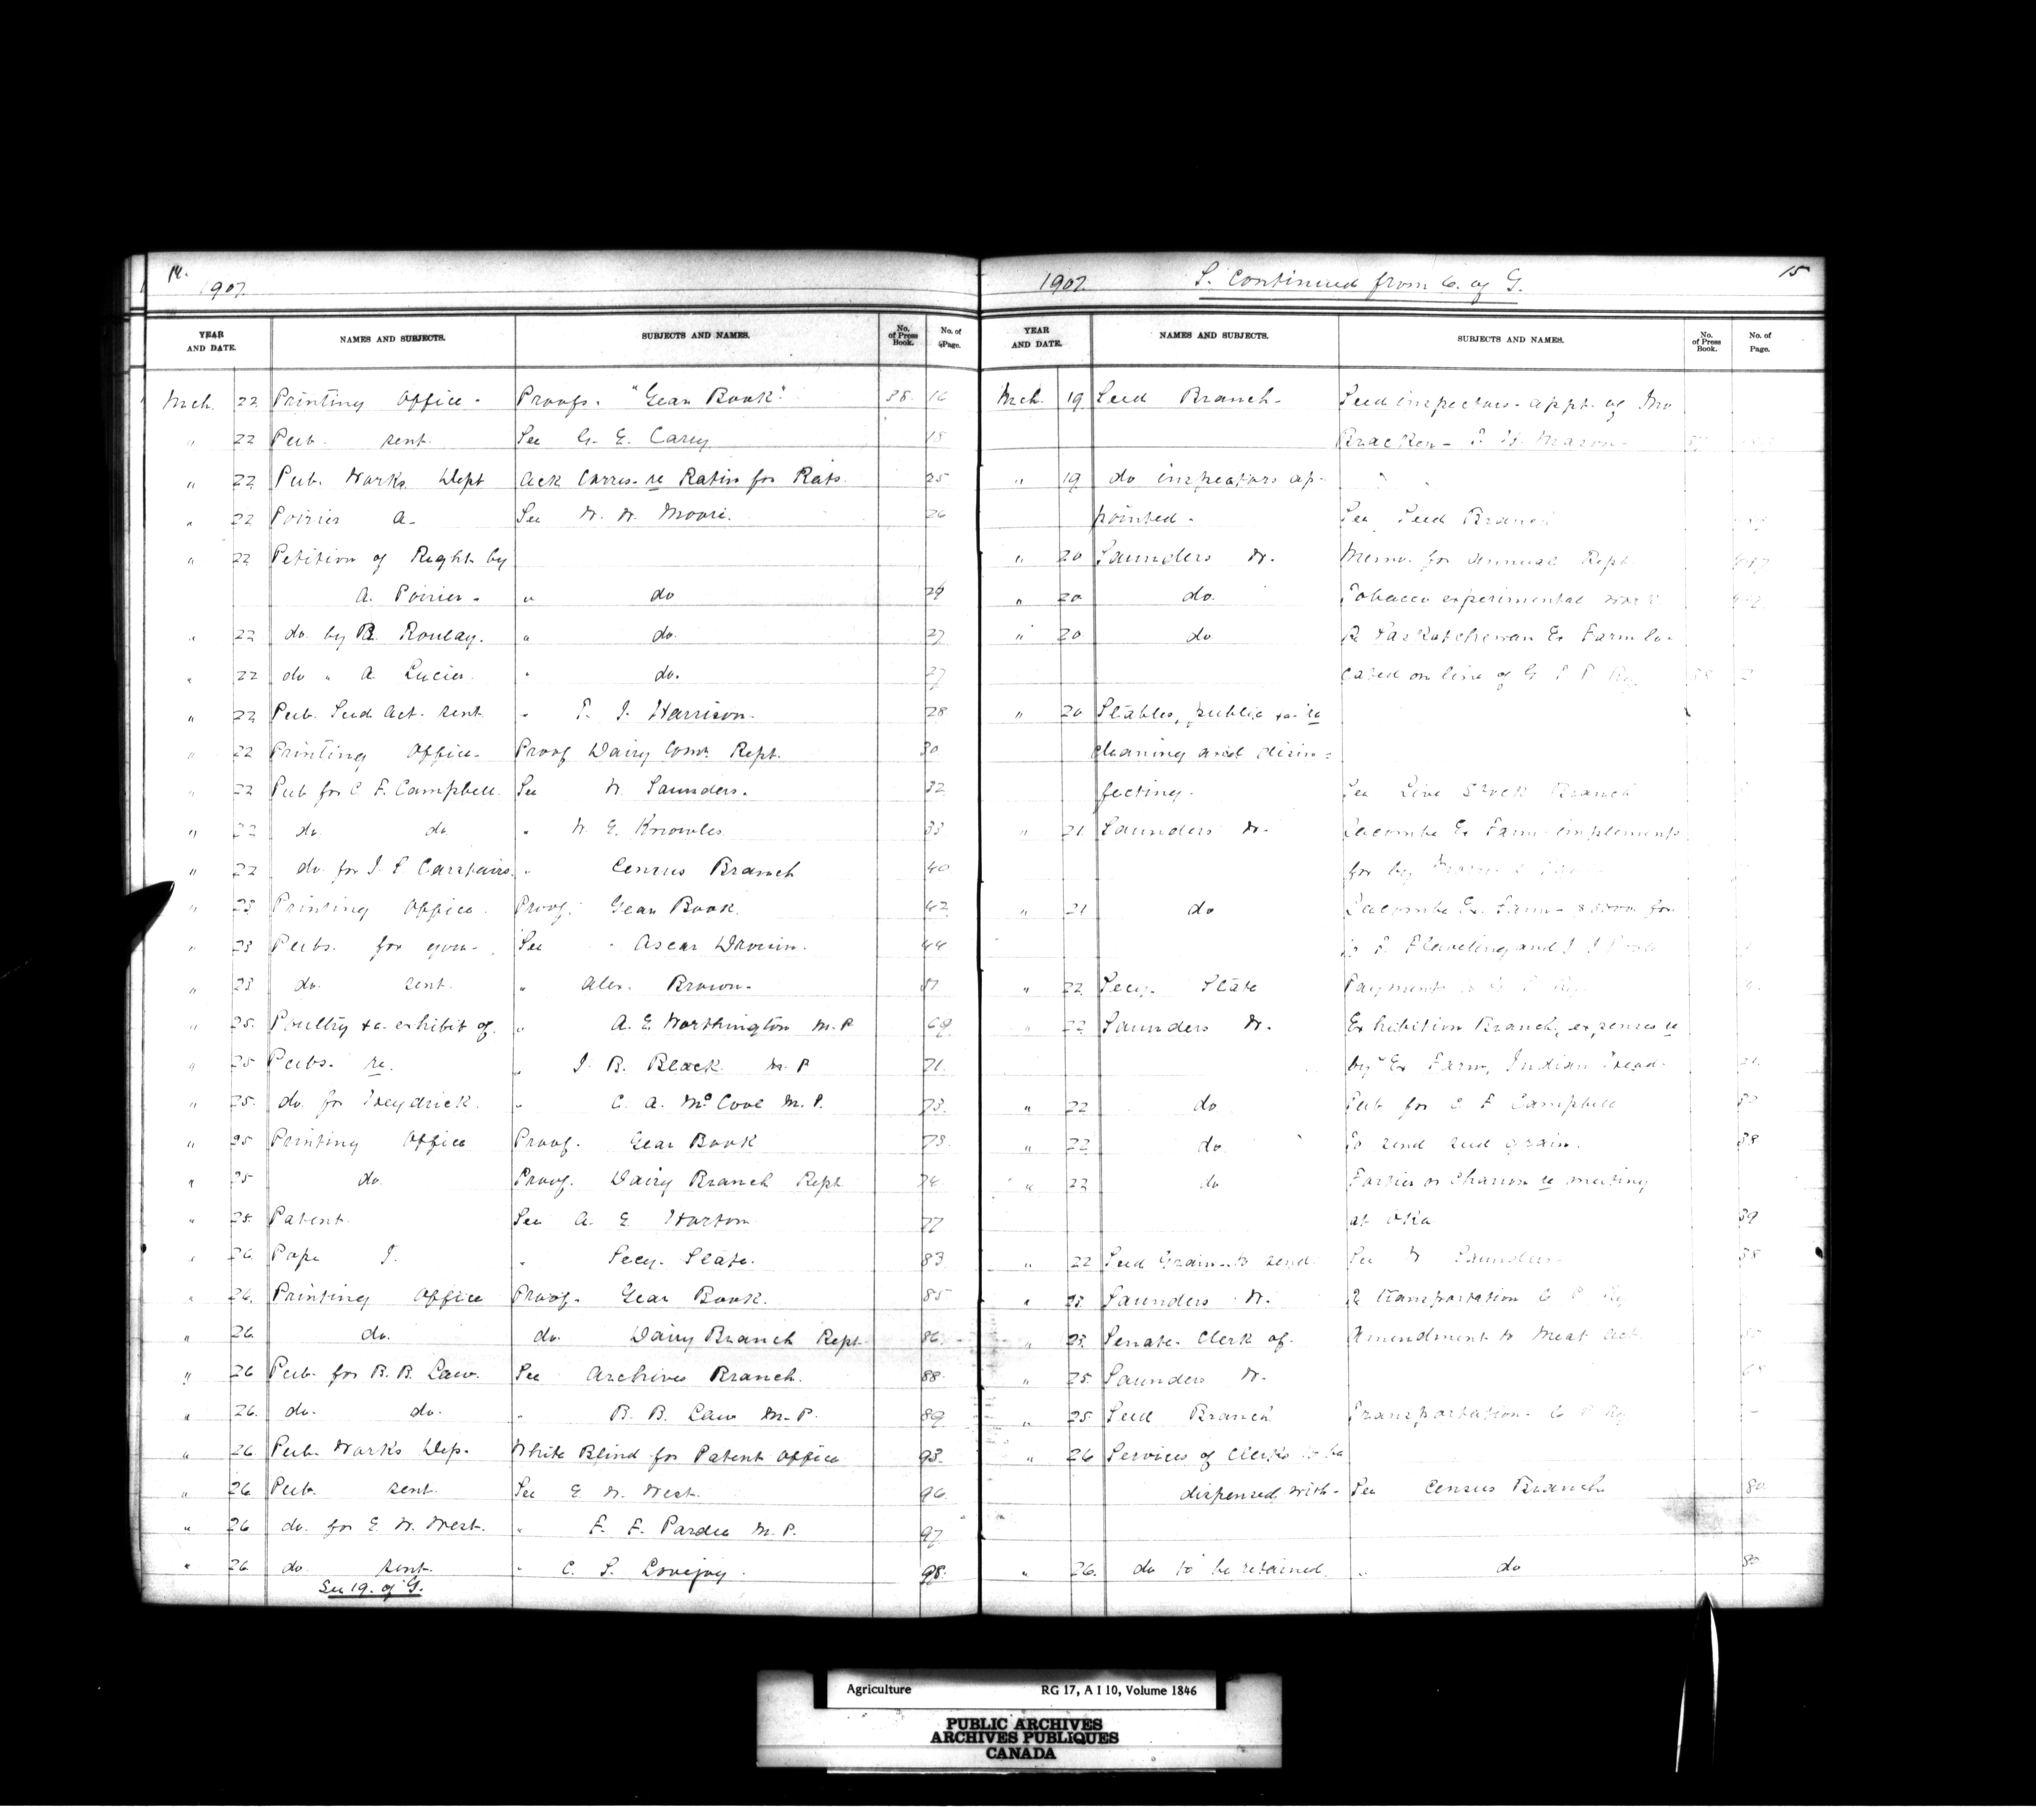 14.
1907
YEAR AND DATE. NAMES AND SUBJECTS. SUBJECTS AND NAMES. No. of Press Book. No. of Page.
Mch. 22 Printing Office - Proofs. "Year Book" 38. 16
" 22 Pub. sent. See G. E. Carey 18
" 22 Pub. Works Dept Ack Corres. re Ratin for Rats. 25
" 22 Poirier A. See W. W. Moore. 26
" 22 Petition of Right by
A. Poirier - " do 26
" 22 do. by B. Roulay. " do. 27
" 22 do " A. Lucier. " do. 27
" 22 Pub. Seed Act. sent " T. J. Harrison. 28
" 22 Printing Office - Proof Dairy Comr. Rept. 30
" 22 Pub for C. F. Campbell. See W. Saunders. 32
" 22 do. do. " W. E. Knowles 33
" 22 do. for J. S Carstairs. " Census Branch 40
" 23 Printing Office. Proof. Year Book. 42
" 23 Pubs. for you. See Oscar Drouin. 44
" 23 do. sent. " Alex. Brown. 51
" 25. Poultry &c. exhibit of. " A. E. Worthington M.P. 69
" 25 Pubs. re. " J. B. Black M.P 71
" 25. do. for Heydrick. " C. A. McCool M.P. 73.
" 25 Printing Office Proof. Year Book 73.
" 25 do. Proof. Dairy Branch Rept 74
" 25. Patent. See A. E. Horton 77
" 26 Pope J. " Secy. State. 83
" 26. Printing Office Proof. Year Book. 85
" 26. do. do. Dairy Branch Rept 86.
" 26 Pub. for B. B. Law. See Archives Branch. 88
" 26. do. do. " B. B. Law M.P. 89
" 26. Pub. Works Dep. White Blind for Patent Office 93.
" 26. Pub. sent. See E. W. West. 96
" 26 do. for E. W. West. " F. F. Pardee M.P. 97
" 26 do sent. " C. S. Lovejoy. 98.
See 19. of G.
1907 S. Continued from 6. of G. 15
YEAR AND DATE. NAMES AND SUBJECTS. SUBJECTS AND NAMES. No. of Press Book. No. of Page.
Mch. 19 Seed Branch - Seed inspectors - appt. of Jno
Bracken - T. H. Mason -
" 19 do inspectors ap-
pointed - See Seed Branch
" 20 Saunders W. Memo. for Annual Rept
" 20 do. Tobacco experimental work
" 20 do R Saskatchewan Ex Farm lo-
cated on line of G T P Ry
" 20 Stables, public &c re
cleaning and disin-
fecting. See Live Stock Branch
" 21 Saunders W. Lacombe Ex Farm implements
for by
" 21 do Lacombe Ex. Farm - for
Flewelling and
" 22 Secy. State Payments
" 22 Saunders W. Exhibition Branch, expenses re
by Ex Farm, Indian Head. 21.
" 22 do Pub for C F Campbell 32
" 22 do. To send seed grain. 38
" 22 do Fortier or Charron re meeting
at Oka 39
" 22 Seed Grain to send. See W Saunders 38
" 23. Saunders W. R transportation C P Ry
" 23. Senate. Clerk of. Amendment to Meat Act
" 25. Saunders W. 65
" 25 Seed Branch Transportation - C P Ry
" 26 Services of Clerks to be
dispensed with - See Census Branch 80
" 26. do to be retained. " do 80
Agriculture RG 17, A I 10, Volume 1846
PUBLIC ARCHIVES
ARCHIVES PUBLIQUES
CANADA